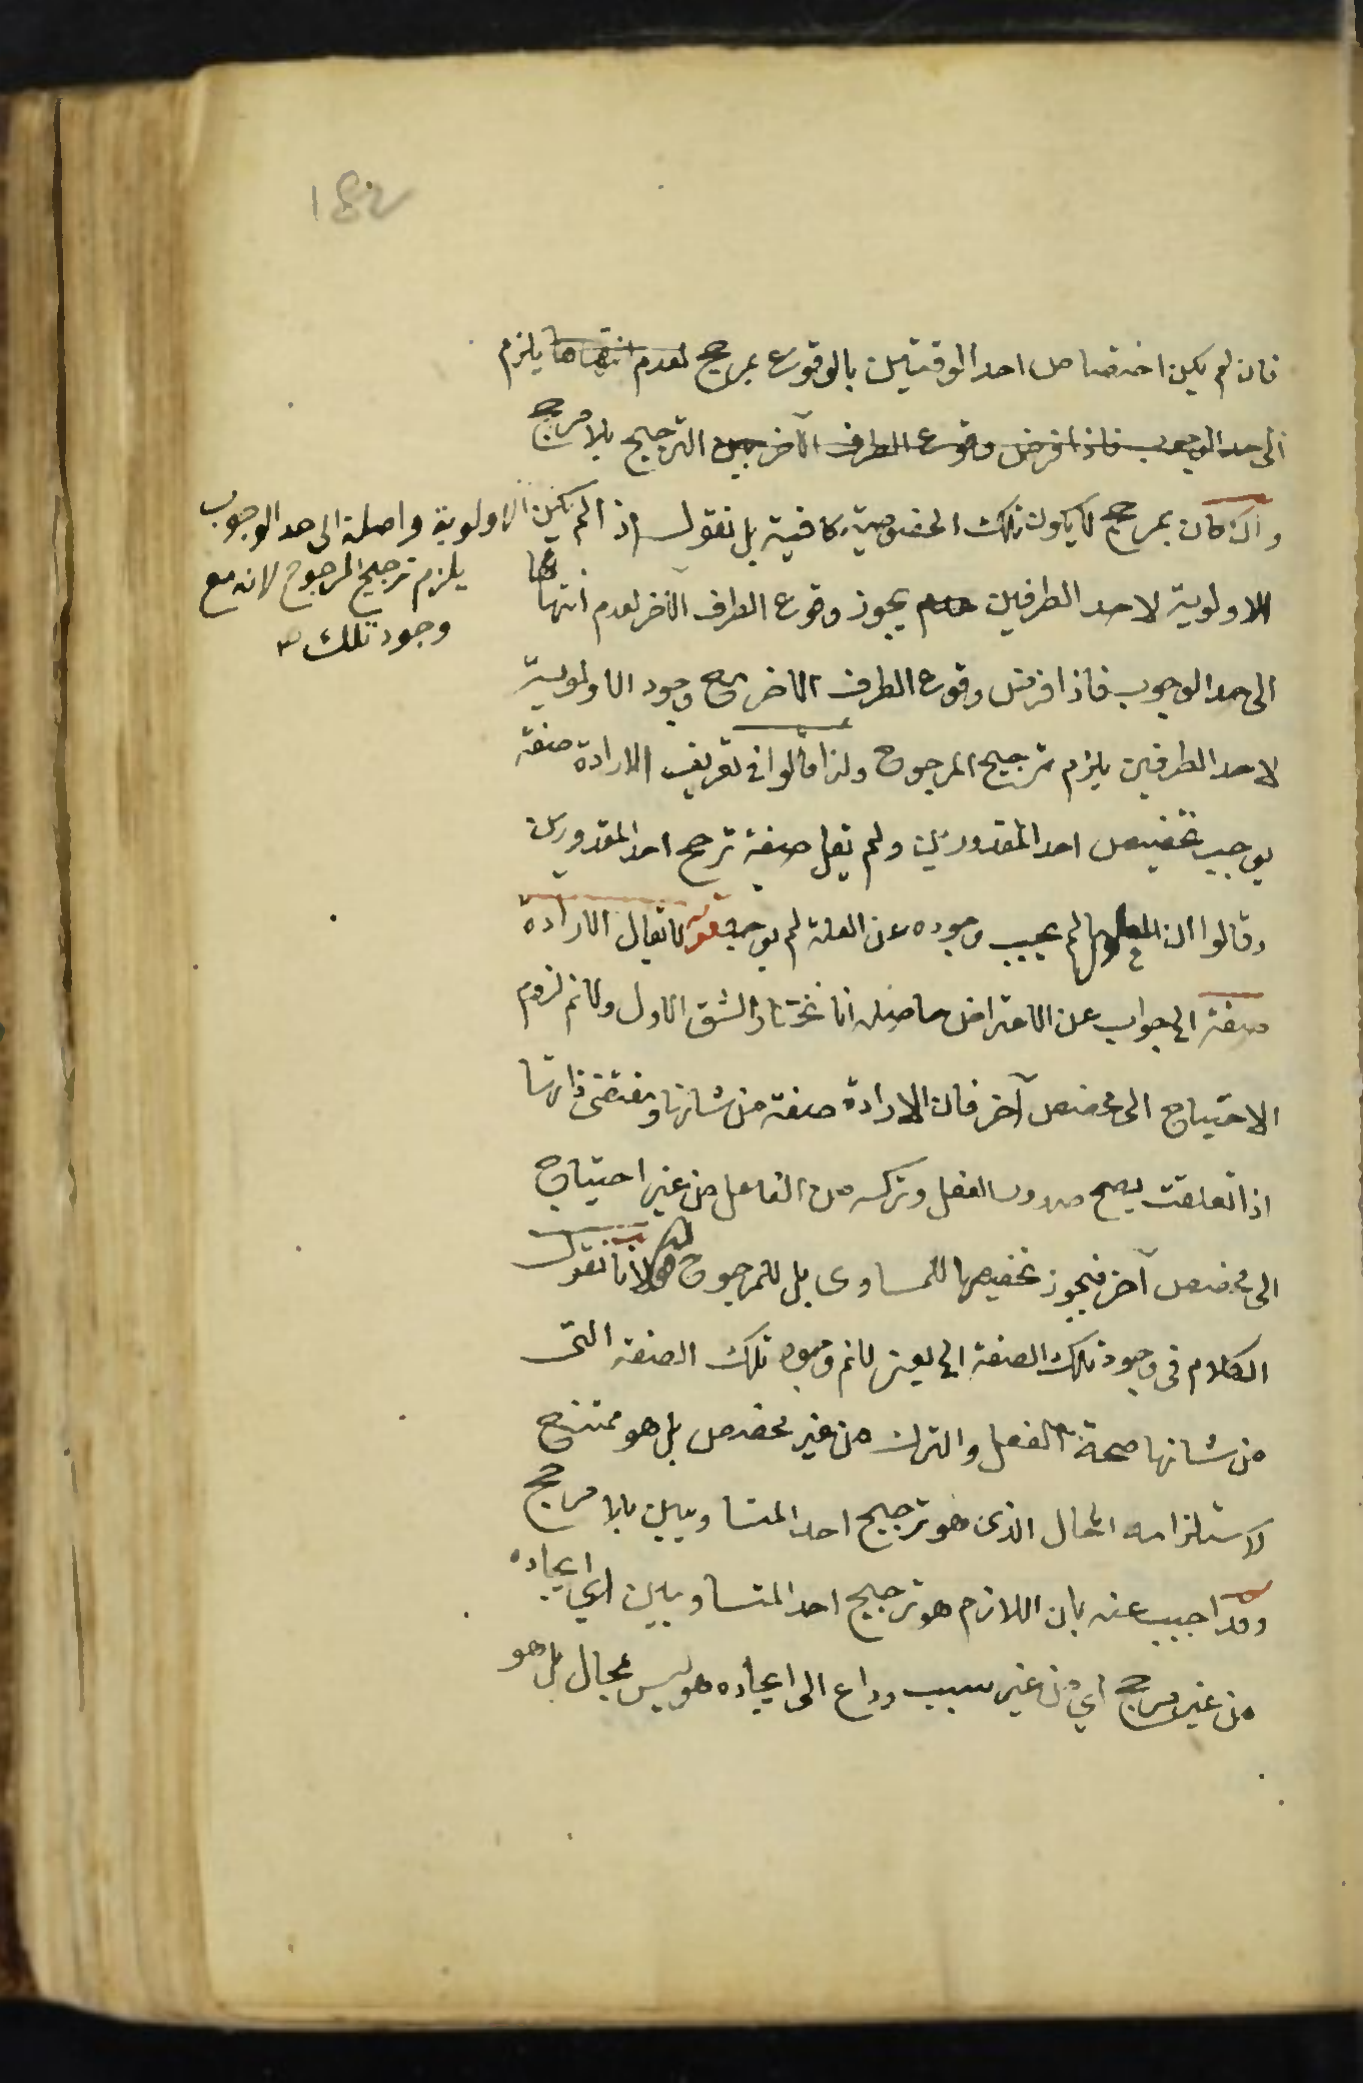 182
فان لم يكن اختصاص احد الوقتين بالوقوع بمرجح لعدم انتهاها يلزم
الى حد الوجوب فاذا فرض وقوع الطرف الآخر الترجيح بلا مرجح
وان كان بمرجح لا يكون تلك الخصوصية كافية بل نقول اذا لم يكن الاولوية واصلة الى حد الوجوب
يلزم ترجيح المرجوح لانه مع
وجود تلك
الاولوية لاحد الطرفين يجوز وقوع الطرف الآخر لعدم انتهائها
الى حد الوجوب فاذا فرض وقوع الطرف الاخر مع وجود الاولوية
لاحد الطرفين يلزم ترجيح المرجوح ولذا قالوا في تعريف الارادة صفة
يوجب تخصيص احد المقدورين ولم يقل صفة ترجح احد المقدورين
وقالوا ان المعلول لم يجب وجوده عن العلة لم يوجد قوله لا يقال الارادة
صفة الخ جواب عن الاعتراض حاصله انا نختار الشق الاول ولانم لزوم
الاحتياج الى مخصص آخر فان الارادة صفة من شانها ومقتضى ذاتها
اذا تعلقت يصح صدور الفعل وتركه من الفاعل من غير احتياج
الى مخصص آخر فيجوز تخصيصها للمساوى بل للمرجوح لانا نقول
الكلام في وجود تلك الصفة الخ يعنى لانم وجود تلك الصفة التى
من شانها صحة الفعل والترك من غير مخصص بل هو ممتنع
لاستلزامه المحال الذى هو ترجيح احد المتساويين بلا مرجح
وقد اجيب عنه بان اللازم هو ترجيح احد المتساويين اي ايجاده
من غير مرجح اي من غير سبب وداع الى ايجاده هو ليس بمحال بل هو